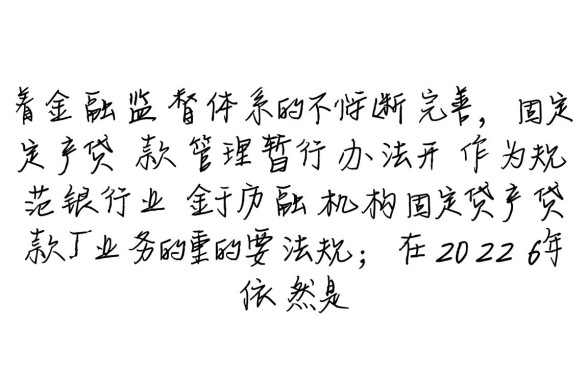 着金融监督体系的不断完善，固定
定产贷 款管理暂行办法开 作为规
范银行业 金于历融机构固定贷产贷
款厂业务的重的要法规；在2022 6年
依然是